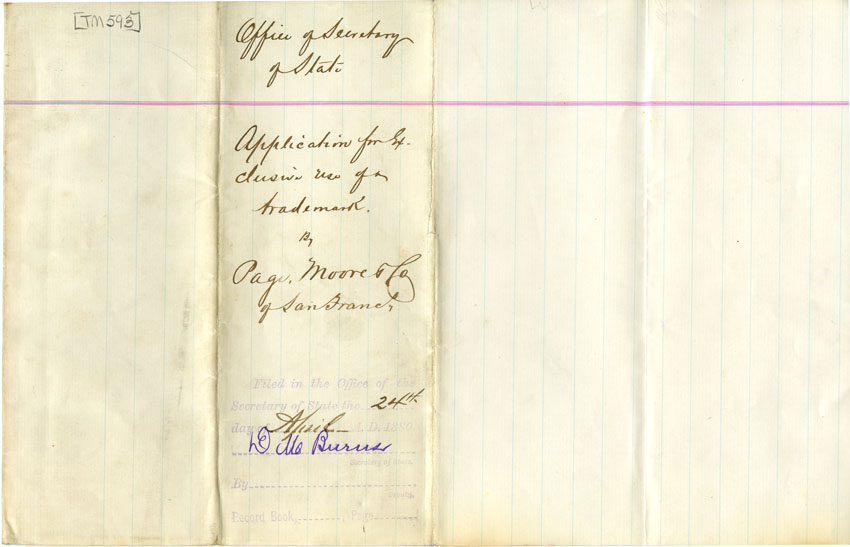 [TM 593]
Office of Secretary
of State
Application for Ex-
clusive use of a
trademark.
By
Page, Moore & Co
of San Franc
Filed in the Office of the
Secretary of State the 24th
day of April A.D. 1880
D M Burns
Secretary of State.
By
Deputy.
Record Book, , Page